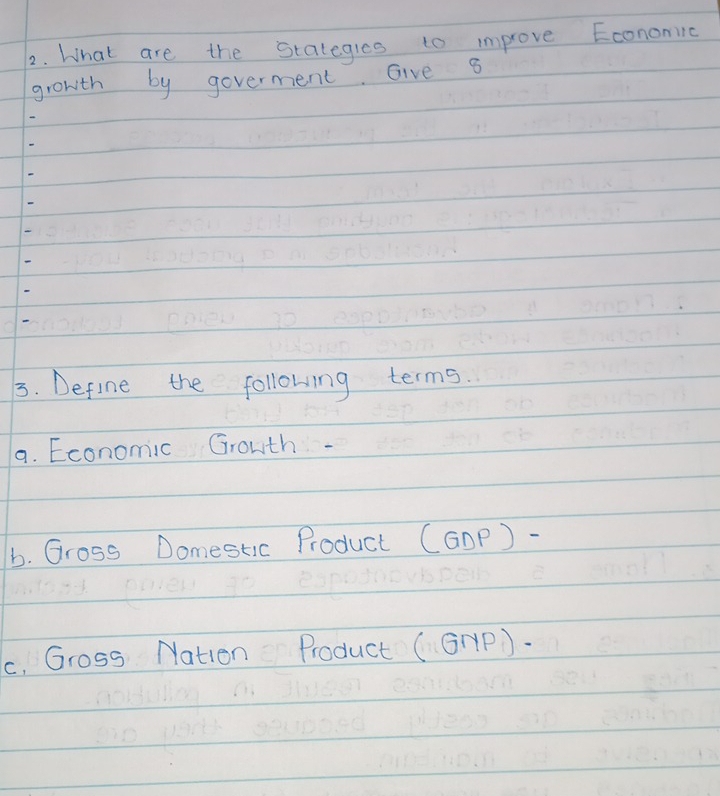 2. What are the Stategies to improve Economic
growth by goverment. Give 8
-
-
-
-
-
-
-
-
3. Define the following terms.
a. Economic Growth -
b. Gross Domestic Product (GDP) -
c. Gross Nation Product (GNP).-